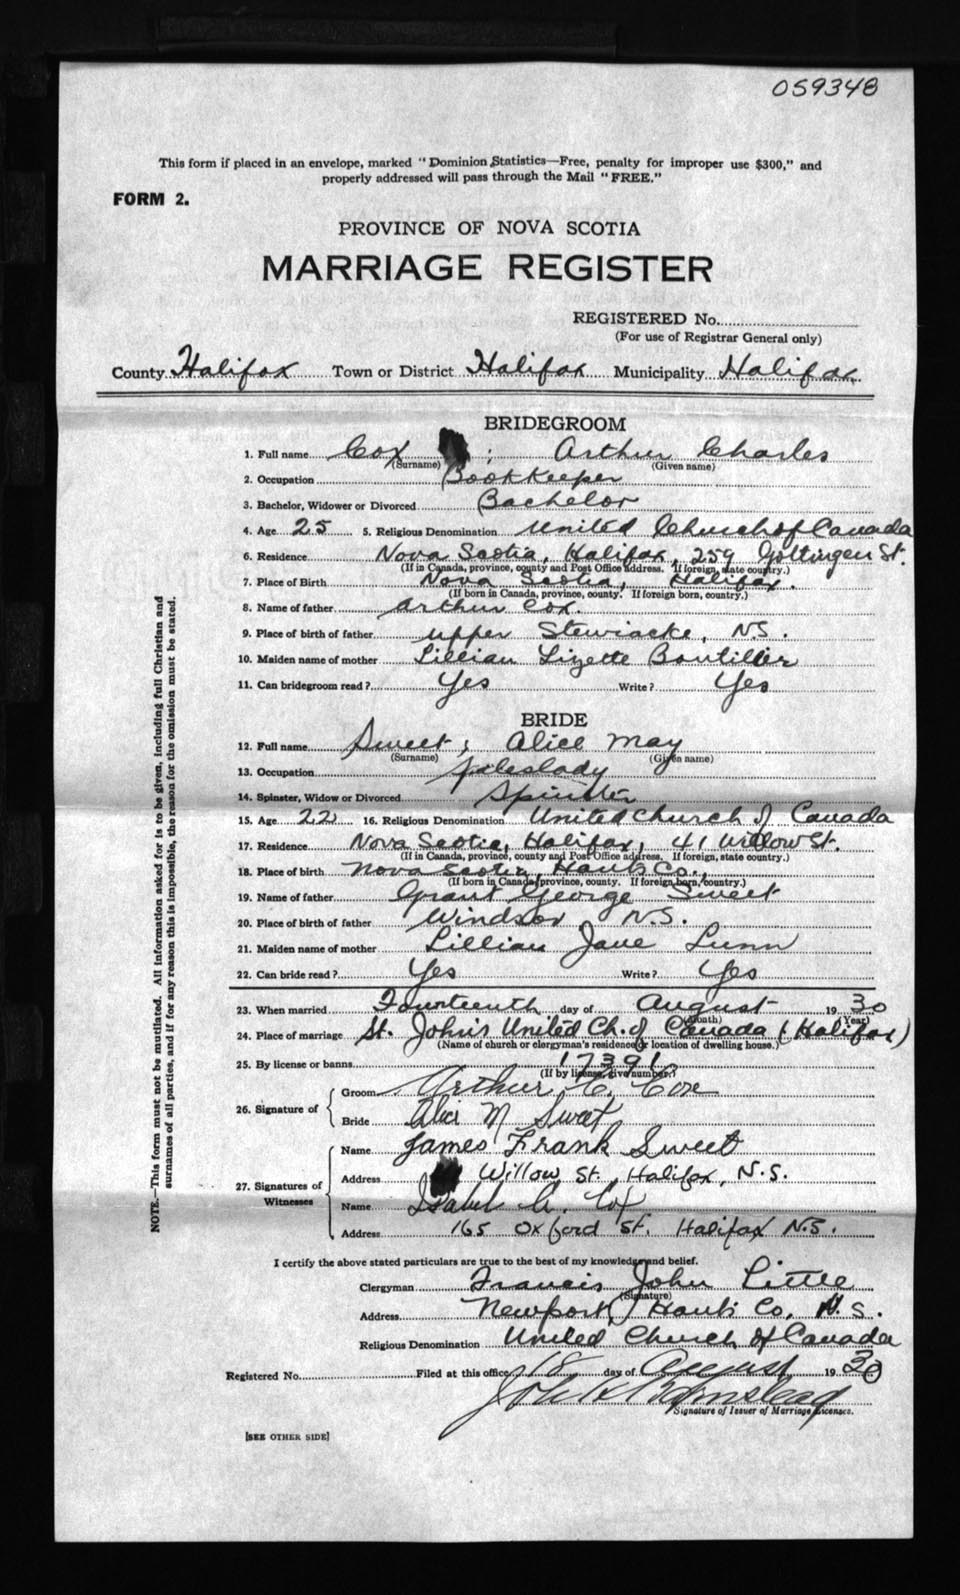 059348
This form if placed in an envelope, marked "Dominion Statistics—Free, penalty for improper use $300," and
properly addressed will pass through the Mail "FREE."
FORM 2.
PROVINCE OF NOVA SCOTIA
MARRIAGE REGISTER
REGISTERED No.
(For use of Registrar General only)
County Halifax Town or District Halifax Municipality Halifax
BRIDEGROOM
1. Full name Cox ; Arthur Charles
(Surname) (Given name)
2. Occupation Bookkeeper
3. Bachelor, Widower or Divorced Bachelor
4. Age 25 5. Religious Denomination United Church of Canada
6. Residence Nova Scotia, Halifax, 259 Gottingen St.
(If in Canada, province, county and Post Office address. If foreign, state country.)
7. Place of Birth Nova Scotia, Halifax.
(If born in Canada, province, county. If foreign born, country.)
8. Name of father Arthur Cox.
9. Place of birth of father Upper Stewiacke, N.S.
10. Maiden name of mother Lillian Lizette Boutilier
11. Can bridegroom read? Yes Write? Yes
BRIDE
12. Full name Sweet, Alice May
(Surname) (Given name)
13. Occupation Saleslady
14. Spinster, Widow or Divorced Spinster
15. Age 22 16. Religious Denomination United Church of Canada
17. Residence Nova Scotia, Halifax, 41 Willow St.
(If in Canada, province, county and Post Office address. If foreign, state country.)
18. Place of birth Nova Scotia, Hants Co.,
(If born in Canada, province, county. If foreign born, country.)
19. Name of father Grant George Sweet
20. Place of birth of father Windsor, N.S.
21. Maiden name of mother Lillian Jane Lunn
22. Can bride read? Yes Write? Yes
23. When married Fourteenth day of August 1930
(Month) (Year)
24. Place of marriage St. John's United Ch. of Canada (Halifax)
(Name of church or clergyman's residence or location of dwelling house.)
25. By license or banns 17391
(If by license, give number.)
26. Signature of
Groom Arthur C. Cox
Bride Alice M Sweet
27. Signatures of Witnesses
Name James Frank Sweet
Address Willow St., Halifax, N.S.
Name Isabel A. Cox
Address 165 Oxford St. Halifax N.S.
I certify the above stated particulars are true to the best of my knowledge and belief.
Clergyman Francis John Little
(Signature)
Address Newport, Hants Co, N.S.
Religious Denomination United Church of Canada
Registered No. Filed at this office 18 day of August 1930
Signature of Issuer of Marriage Licenses.
[SEE OTHER SIDE]
NOTE.—This form must not be mutilated. All information asked for is to be given, including full Christian and
surnames of all parties, and if for any reason this is impossible, the reason for the omission must be stated.